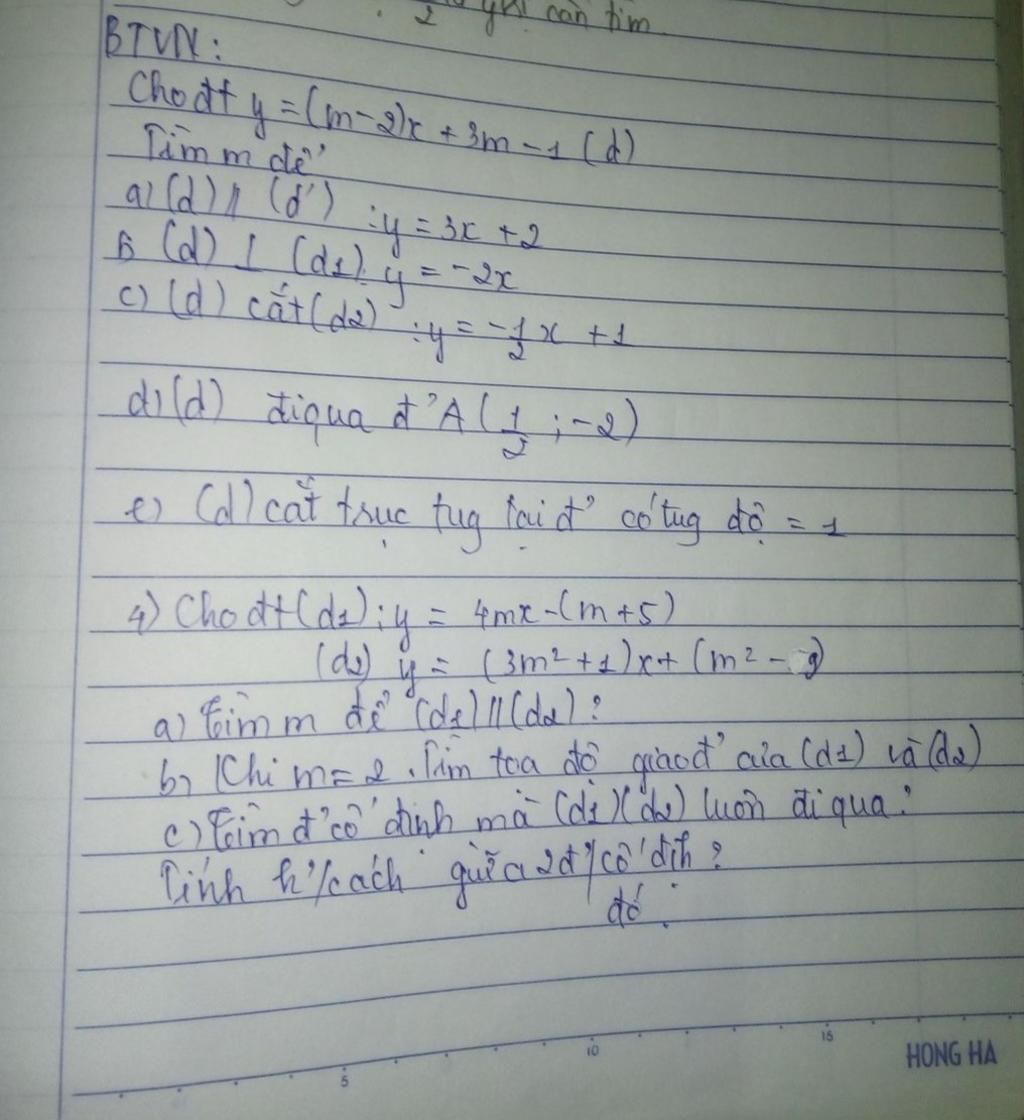 2 yk! cần tìm
BTVN:
Cho đt y = (m-2)x + 3m - 1 (d)
Tìm m để
a) (d) // (d') : y = 3x + 2
b (d) ⊥ (d1). y = -2x
c) (d) cắt (d2) : y = -1/2 x + 1
d) (d) đi qua đ' A (1/2 ; -2)
e) (d) cắt trục tug tại đ' có tug độ = 1
4) Cho đt (d1) : y = 4mx - (m+5)
(d2) y = (3m² + 1)x + (m² - 9)
a) tìm m để (d1) // (d2) ?
b) Khi m = 2. Tìm toạ độ giao đ' của (d1) và (d2)
c) tìm đ' cố định mà (d1) (d2) luôn đi qua ?
Tính k'/cách giữa 2 đ' cố địh ?
đó.
5 10 15
HONG HA